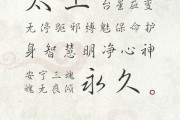 太上 台星应变
无停驱邪缚魅保命护
身智慧明净心神
安宁三魂 永久
魄无丧倾。